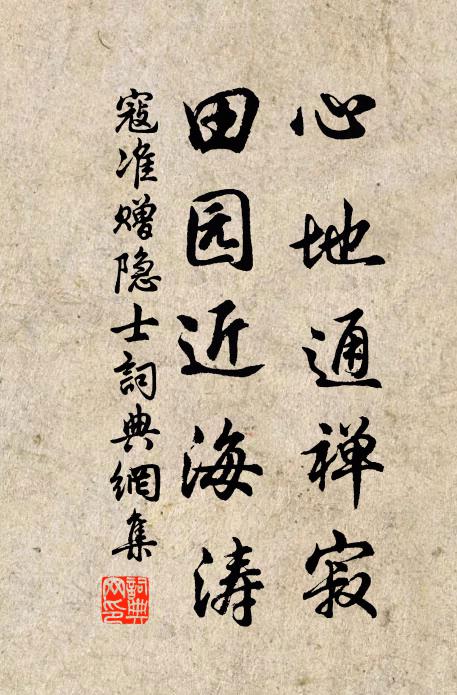 心地通禅寂
田园近海涛
寇准赠隐士詞典網集
詞典
网印